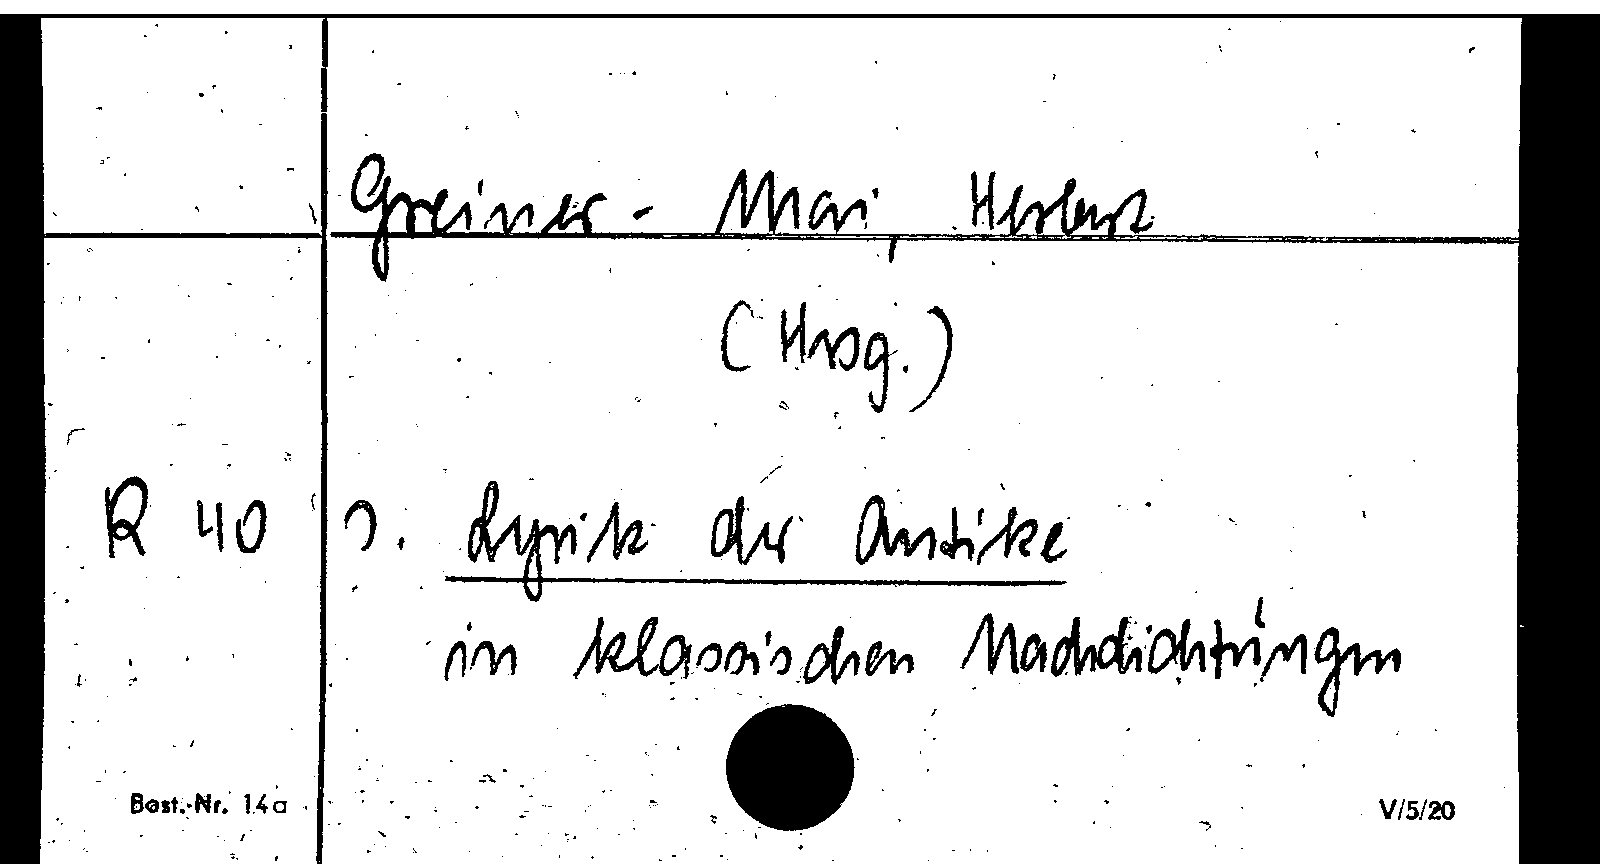 Greiner-Mai, Herbert
(Hrsg.)
R 40 s. Lyrik der Antike
in klassischen Nachdichtungen
Best.-Nr. 14a V/5/20